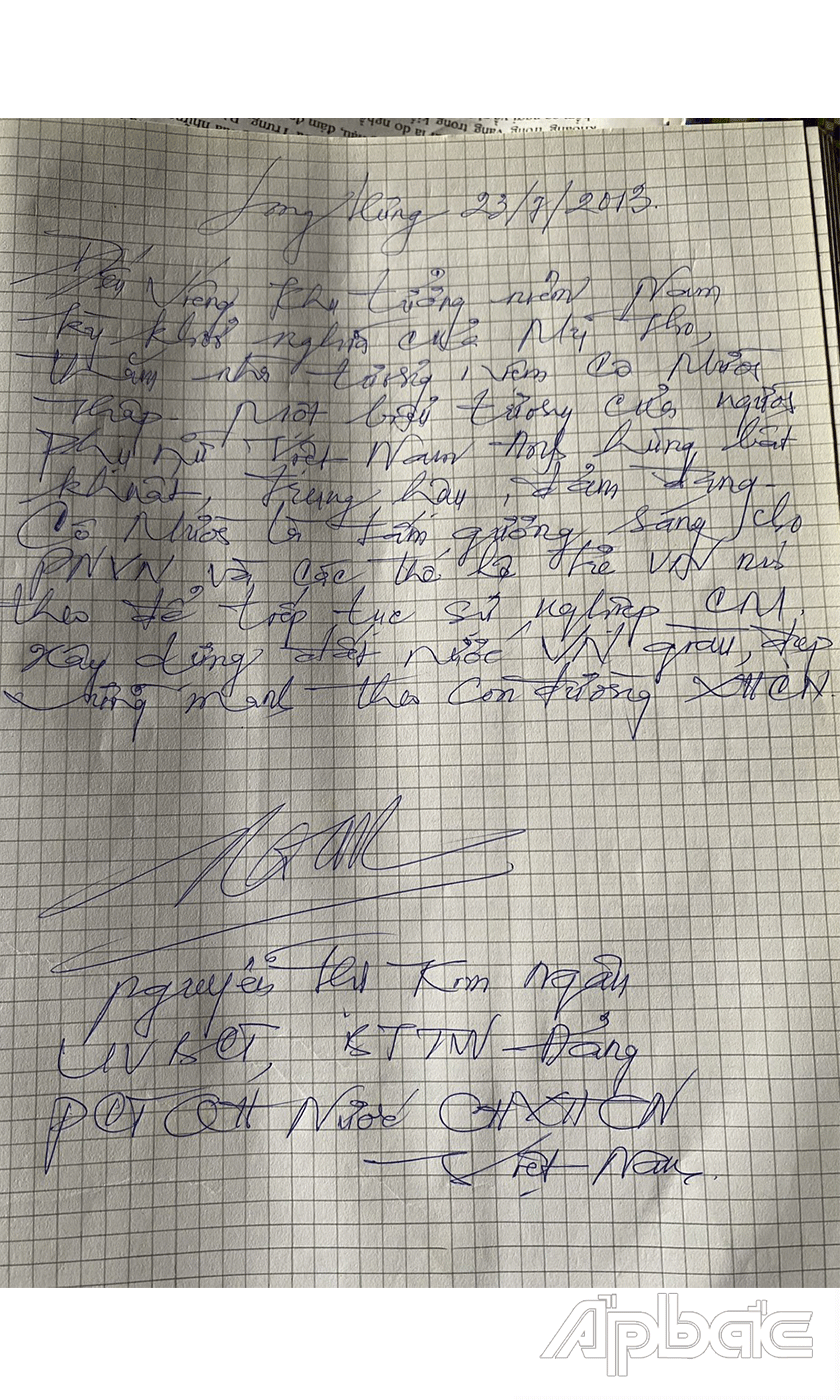 Long Hưng 23/7/2013.
Đến viếng khu tưởng niệm Nam
kỳ khởi nghĩa của Mỹ Tho,
thăm nhà tưởng niệm Cô Mười
Thập - Một biểu tượng của người
phụ nữ Việt Nam Anh hùng, bất
khuất, trung hậu, đảm đang -
Cô Mười là tấm gương sáng cho
PNVN và các thế hệ trẻ VN noi
theo để tiếp tục sự nghiệp CM,
Xây dựng đất nước VN giàu, đẹp
vững mạnh theo con đường XHCN
Nguyễn Thị Kim Ngân
UVBCT, BTTW Đảng
PCTQH Nước CHXHCN
Việt Nam.
Apbắc